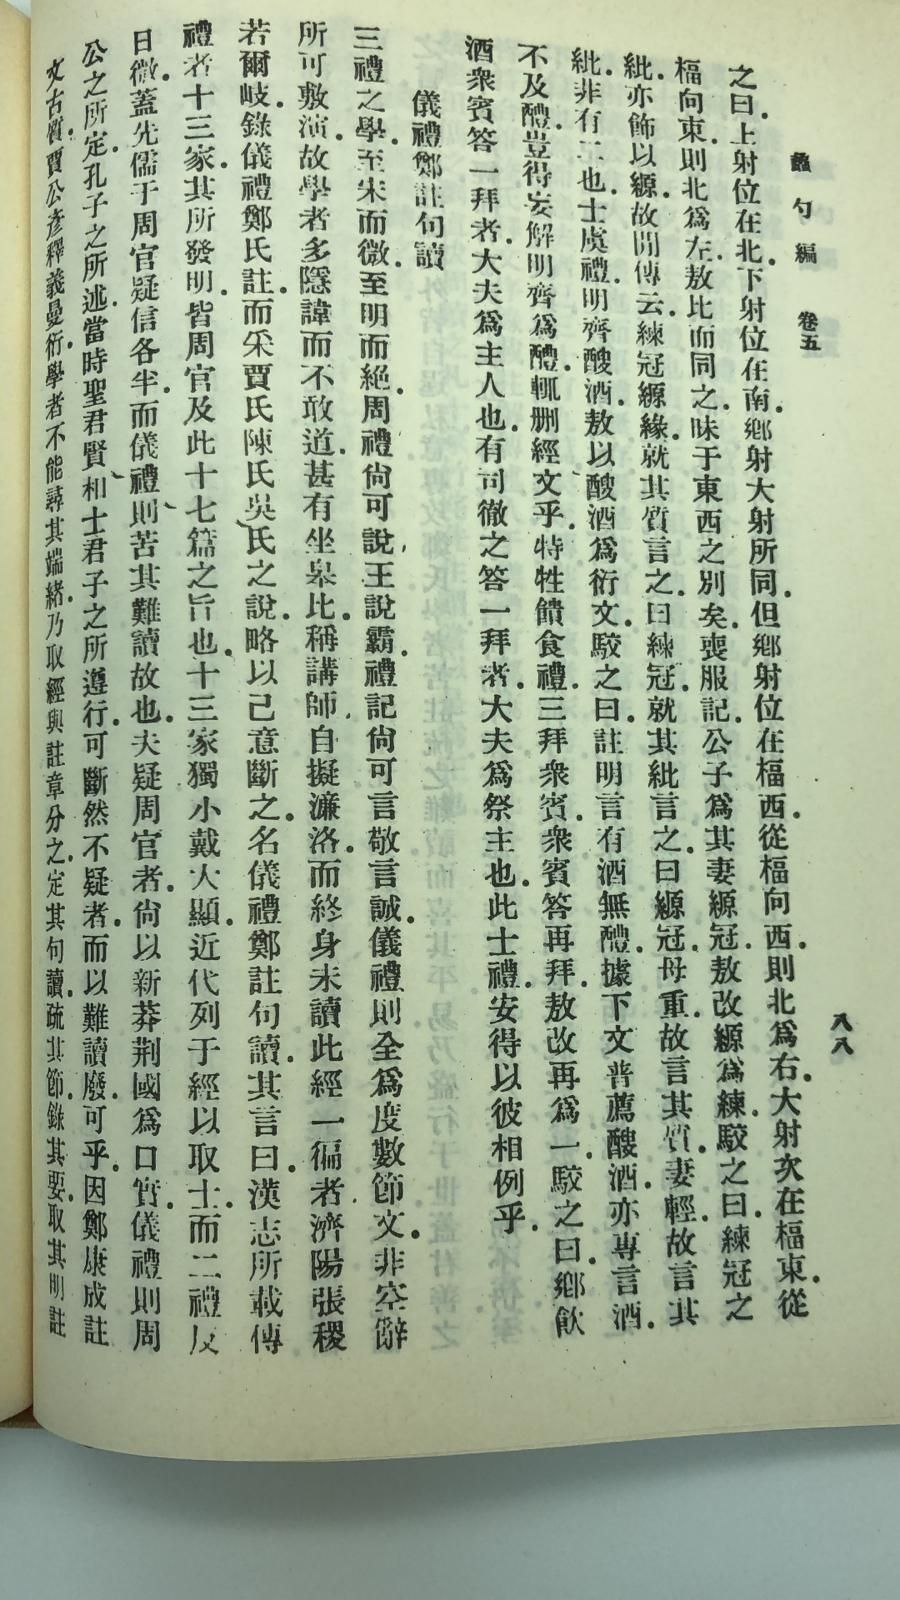 蠡勺編 卷五
八八
之曰上射位在北下射位在南鄉射大射所同但鄉射位在楅西從楅向西則北爲右大射次在楅東從
楅向東則北爲左敖比而同之昧于東西之別矣喪服記公子爲其妻縓冠敖改縓爲練駮之曰練冠之
紕亦飾以縓故閒傳云練冠縓緣就其質言之曰練冠就其紕言之曰縓冠母重故言其質妻輕故言其
紕非有二也士虞禮明齊醙酒敖以醙酒爲衍文駮之曰註明言有酒無醴據下文普薦醙酒亦專言酒
不及醴豈得妄解明齊爲醴輒删經文乎特牲饋食禮三拜衆賓衆賓答再拜敖改再爲一駮之曰鄉飲
酒衆賓答一拜者大夫爲主人也有司徹之答一拜者大夫爲祭主也此士禮安得以彼相例乎
儀禮鄭註句讀
三禮之學至宋而微至明而絶周禮尙可說王說霸禮記尙可言敬言誠儀禮則全爲度數節文非空辭
所可敷演故學者多隱諱而不敢道甚有坐皋比稱講師自擬濂洛而終身未讀此經一徧者濟陽張稷
若爾岐錄儀禮鄭氏註而采賈氏陳氏吳氏之說略以己意斷之名儀禮鄭註句讀其言曰漢志所載傳
禮者十三家其所發明皆周官及此十七篇之旨也十三家獨小戴大顯近代列于經以取士而二禮反
日微蓋先儒于周官疑信各半而儀禮則苦其難讀故也夫疑周官者尙以新莽荆國爲口實儀禮則周
公之所定孔子之所述當時聖君賢相士君子之所遵行可斷然不疑者而以難讀廢可乎因鄭康成註
文古質賈公彥釋義曼衍學者不能尋其端緒乃取經與註章分之定其句讀疏其節錄其要取其明註